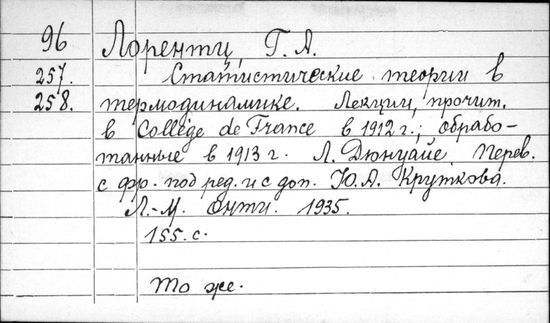 96 Лорентц, Г. А.
257. Статистические теории в
258. термодинамике. Лекции, прочит.
в Collège de France в 1912 г.; обрабо-
танные в 1913 г. Л. Дюнуайе. Перев.
с фр. под ред. и с доп. Ю. А. Круткова.
Л.-М. Онти. 1935.
155. с.
То же.